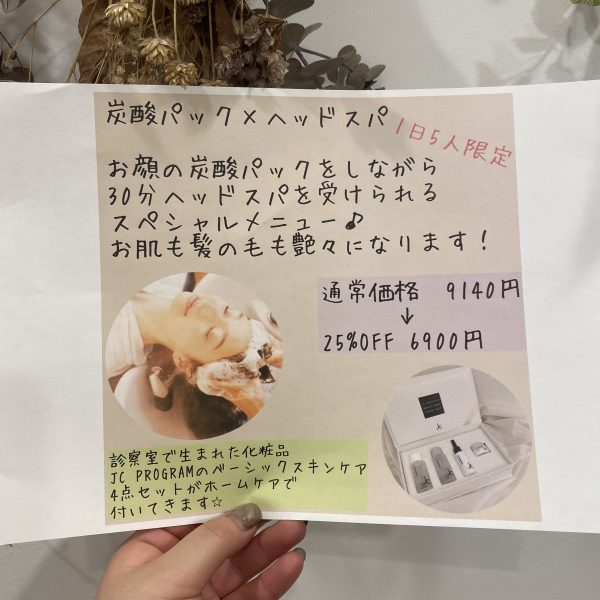 炭酸パック×ヘッドスパ
1日5人限定
お顔の炭酸パックをしながら
30分ヘッドスパを受けられる
スペシャルメニュー♪
お肌も髪の毛も艶々になります!
通常価格 9140円
↓
25%OFF 6900円
診察室で生まれた化粧品
JC PROGRAMのベーシックスキンケア
4点セットがホームケアで
付いてきます☆